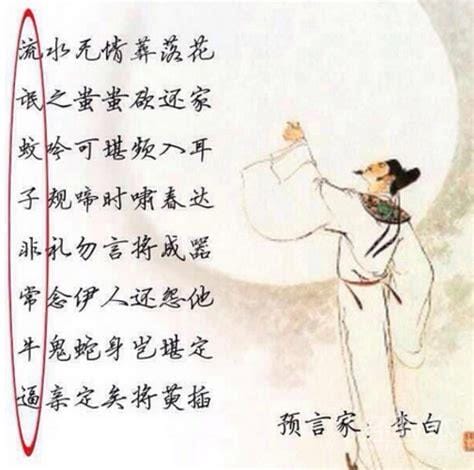 流水无情葬落花
氓之蚩蚩欲还家
蚊吟可堪频入耳
子规啼时啸春达
非礼勿言将成器
常念伊人还怨他
牛鬼蛇身岂堪定
逼亲定矣将萸插
预言家：李白